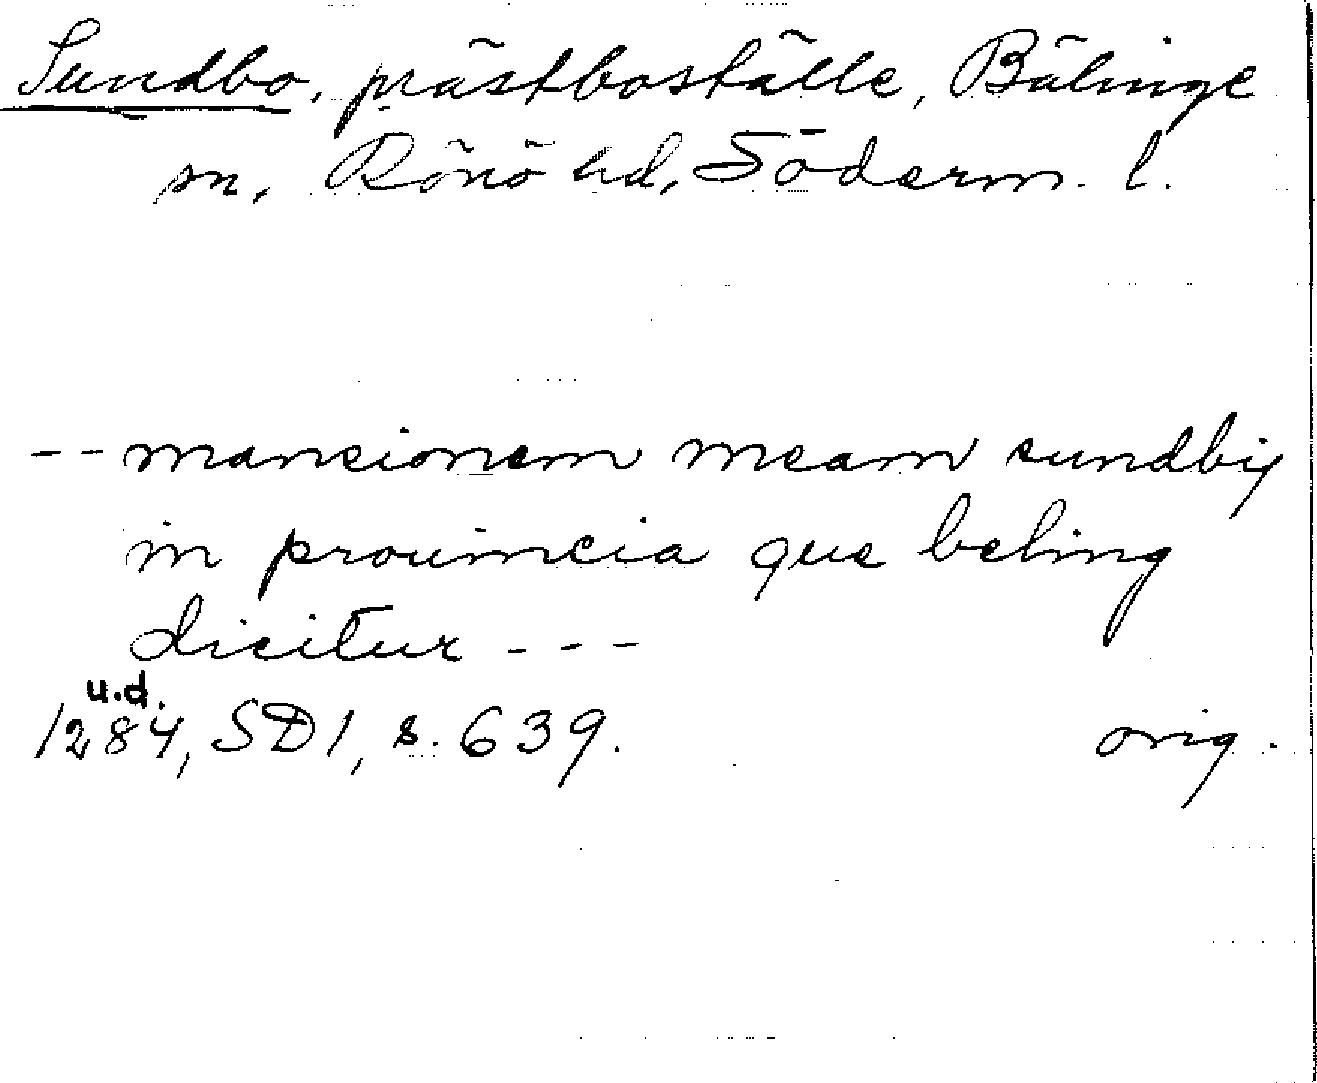 Sundbo, prästboställe, Bälinge
sn, Rönö hd, Söderm. l.
-- mancionem meam sundby
in prouincia que beling
dicitur ---
u.d.
1284, SD1, s. 639. orig.